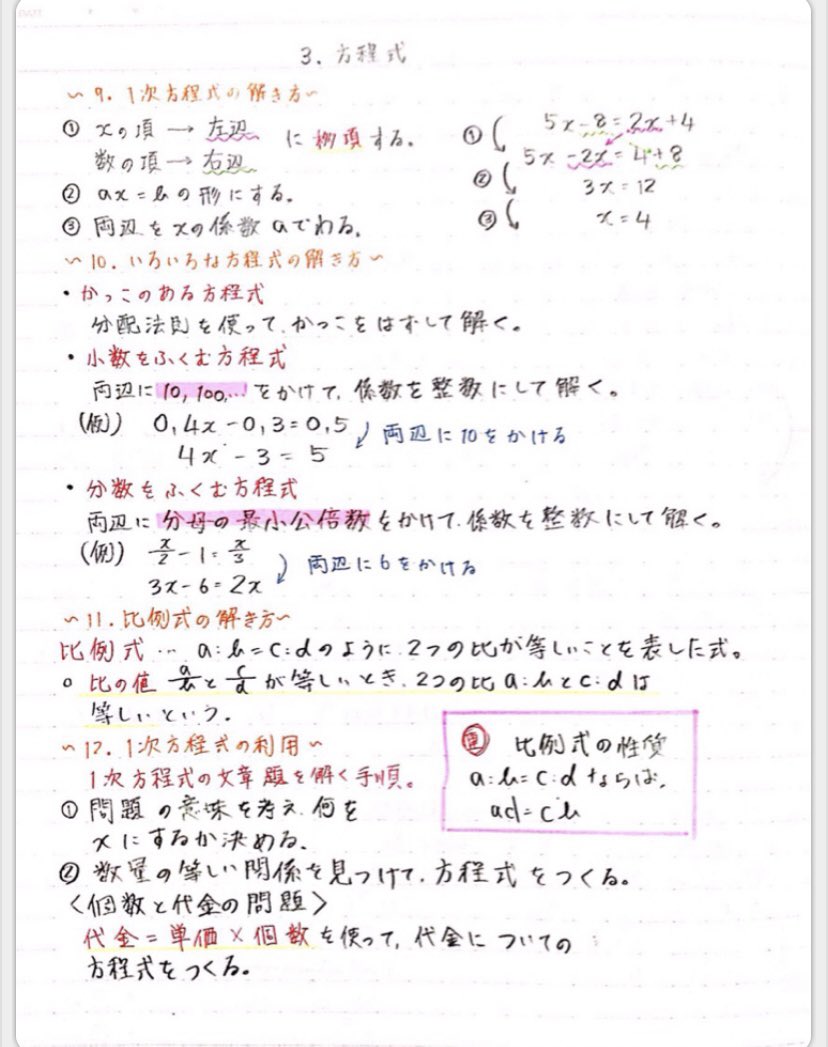 3. 方程式
~ 9. 1次方程式の解き方~
① xの項 → 左辺
数の項 → 右辺
に 移項 する。
② ax = b の形にする。
③ 両辺を xの係数 aでわる。
① 5x-8=2x+4
5x-2x=4+8
② 3x=12
③ x=4
~ 10. いろいろな方程式の解き方~
・かっこのある方程式
分配法則を使って、かっこをはずして解く。
・小数をふくむ方程式
両辺に10, 100,…をかけて、係数を整数にして解く。
(例) 0,4x-0,3=0,5
両辺に10をかける
4x - 3 = 5
・分数をふくむ方程式
両辺に分母の最小公倍数をかけて、係数を整数にして解く。
(例) x/2-1=x/3
両辺に6をかける
3x-6=2x
~ 11. 比例式の解き方~
比例式… a:b=c:dのように、2つの比が等しいことを表した式。
○ 比の値 a/bとc/dが等しいとき、2つの比a:bとc:dは
等しいという。
~ 12. 1次方程式の利用~
1次方程式の文章題を解く手順。
① 問題の意味を考え、何を
xにするか決める。
比例式の性質
a:b=c:dならば、
ad=cb
② 数量の等しい関係を見つけて、方程式をつくる。
<個数と代金の問題>
代金=単価×個数を使って、代金についての
方程式をつくる。